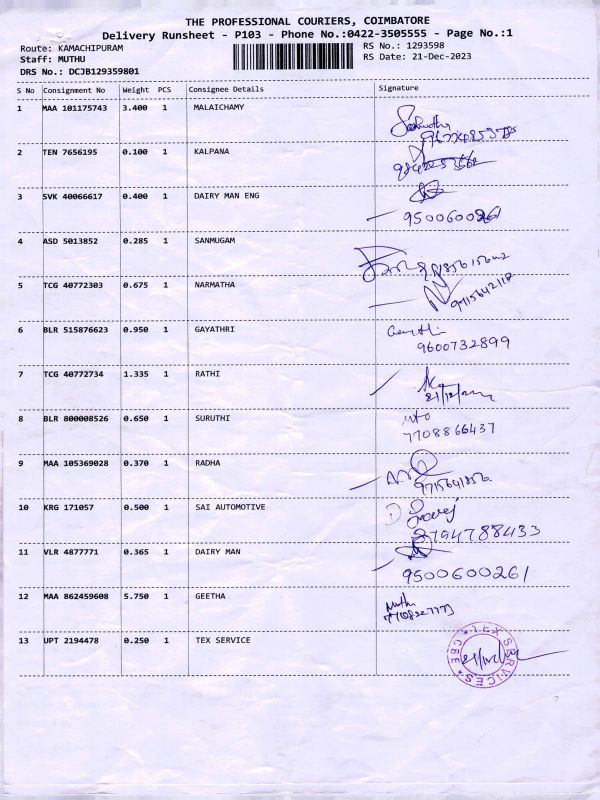 THE PROFESSIONAL COURIERS, COIMBATORE
Delivery Runsheet - P103 - Phone No.:0422-3505555 - Page No.:1
Route: KAMACHIPURAM RS No.: 1293598
Staff: MUTHU RS Date: 21-Dec-2023
DRS No.: DCJB129359801
S No Consignment No Weight PCS Consignee Details Signature
1 MAA 101175743 3.400 1 MALAICHAMY
2 TEN 7656195 0.100 1 KALPANA
3 SVK 40066617 0.400 1 DAIRY MAN ENG
9500600261
4 ASD 5013852 0.285 1 SANMUGAM
5 TCG 40772303 0.675 1 NARMATHA
6 BLR 515876623 0.950 1 GAYATHRI
9600732899
7 TCG 40772734 1.335 1 RATHI
8 BLR 800008526 0.650 1 SURUTHI
7708866437
9 MAA 105369028 0.370 1 RADHA
10 KRG 171057 0.500 1 SAI AUTOMOTIVE
11 VLR 4877771 0.365 1 DAIRY MAN
9500600261
12 MAA 862459608 5.750 1 GEETHA
Muthu
13 UPT 2194478 0.250 1 TEX SERVICE
SERVICES
CBE